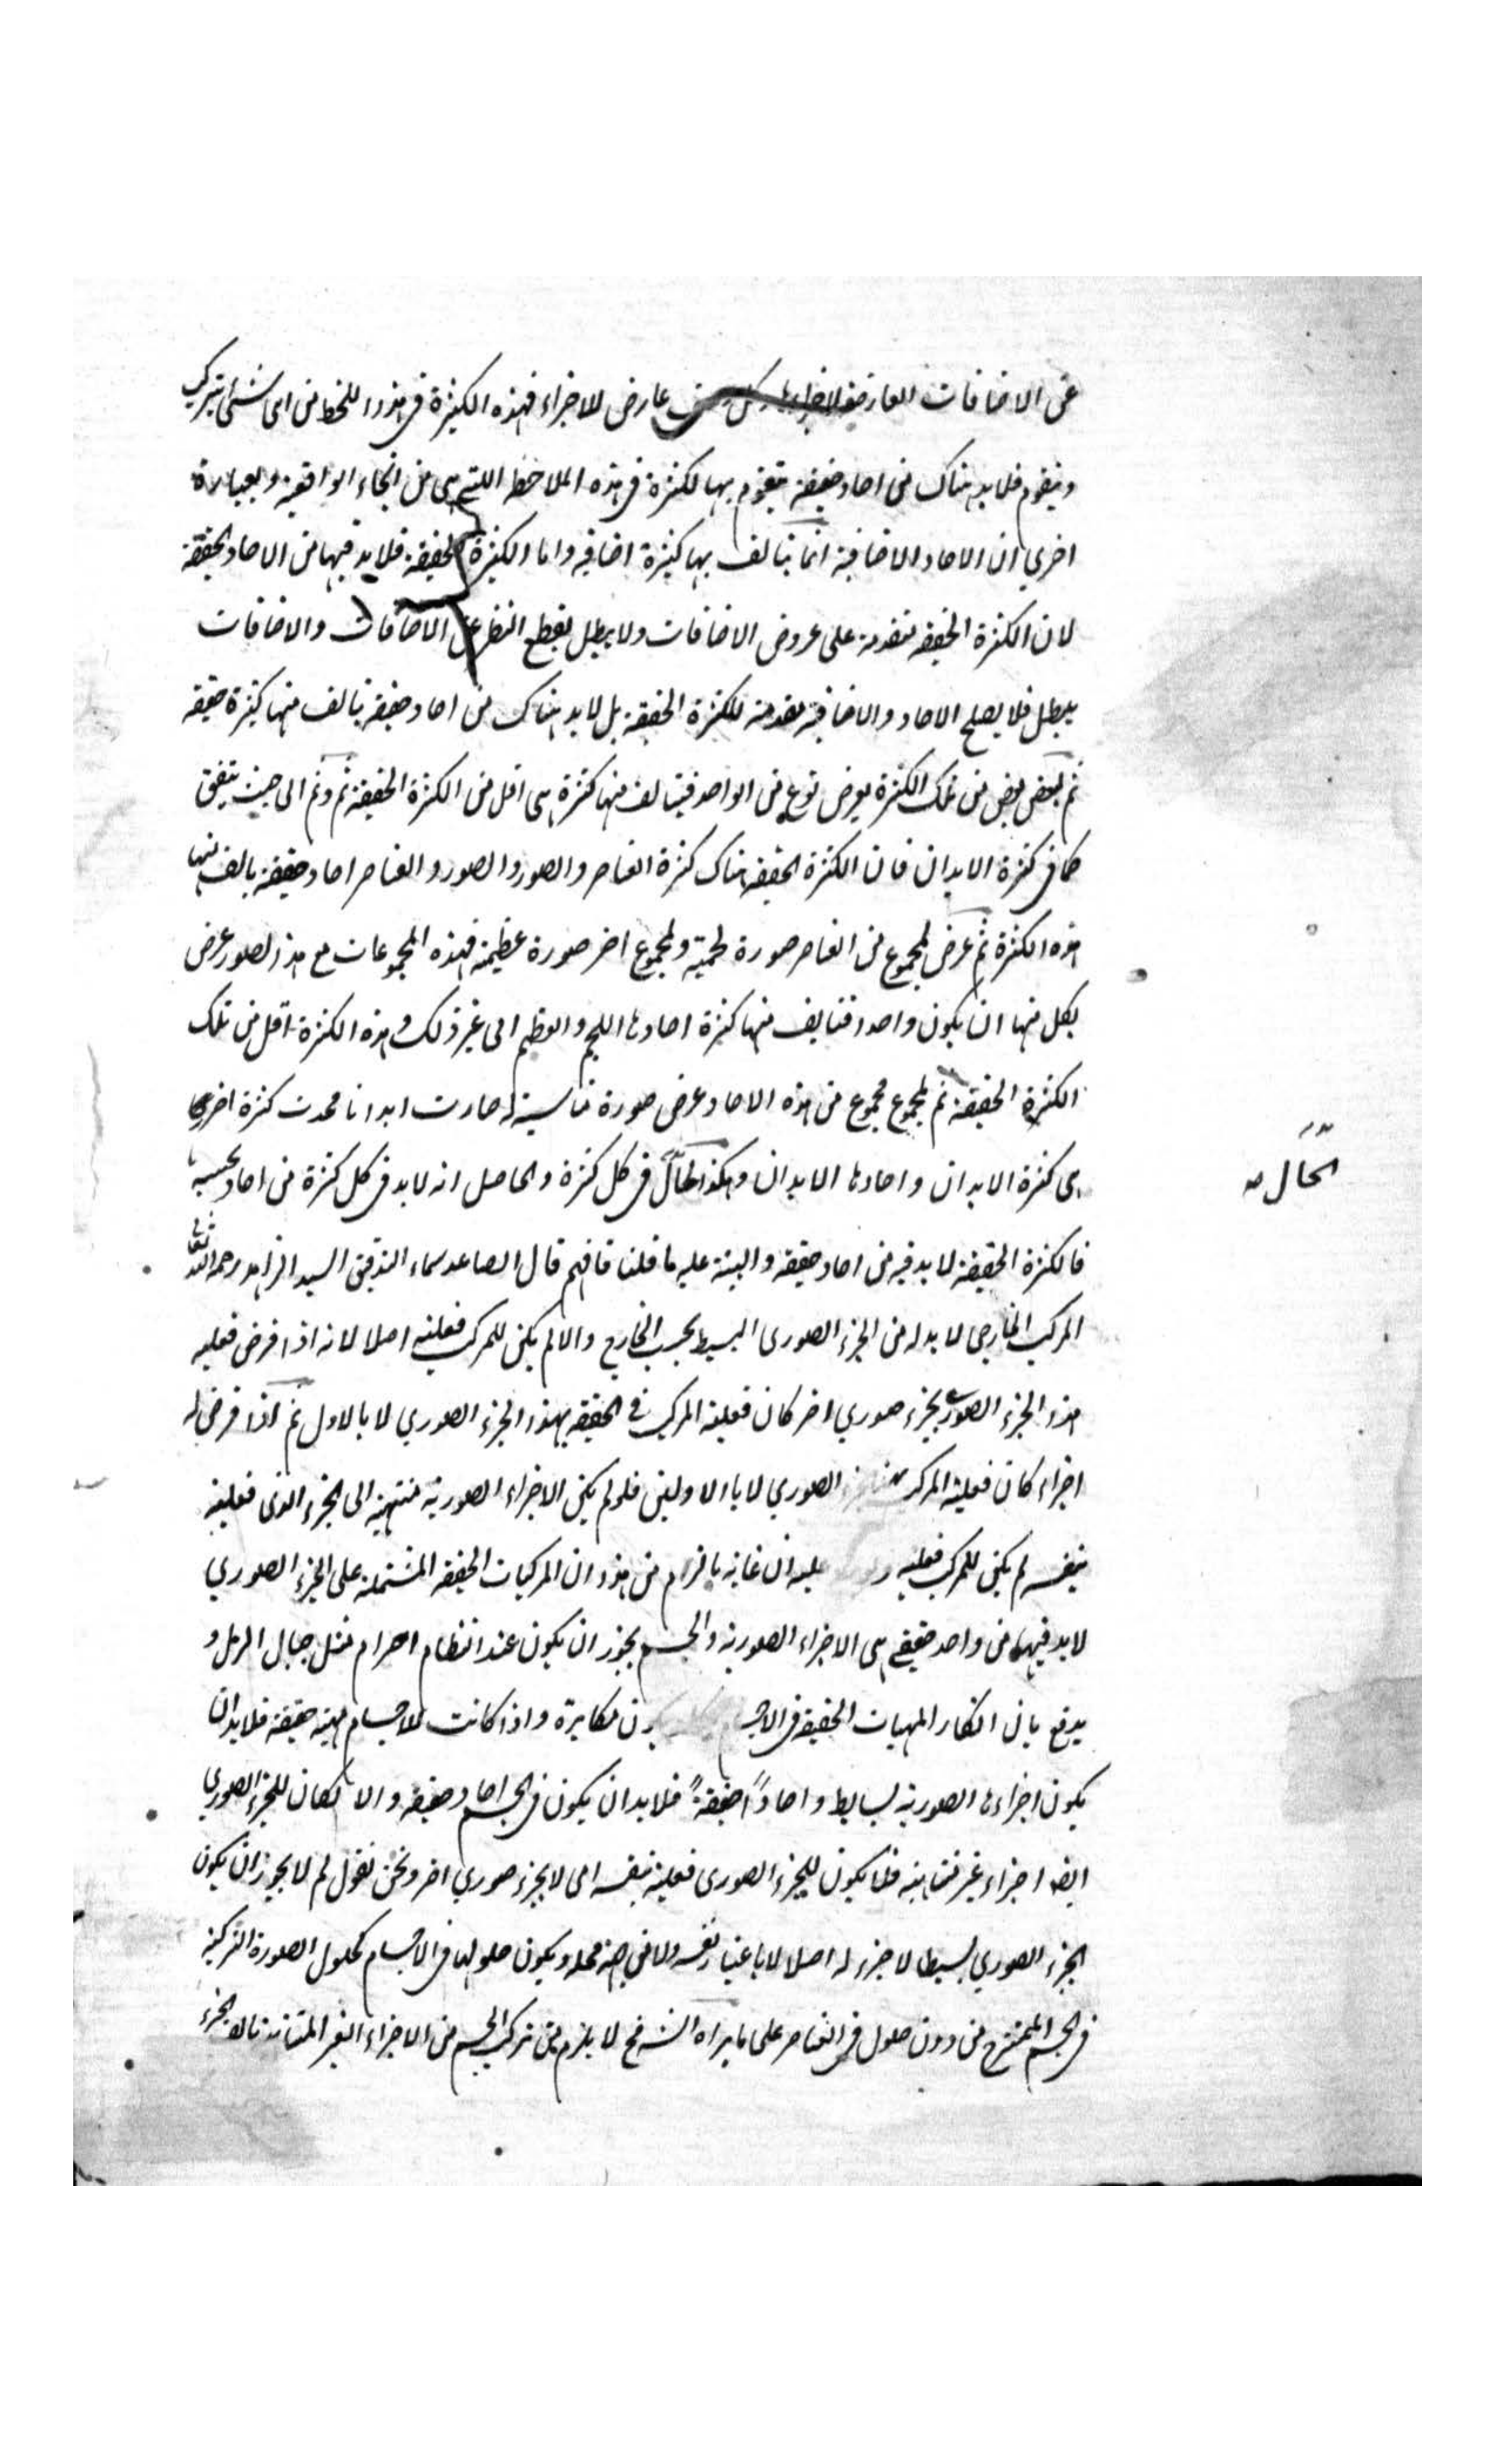 عن الاضافات العارضة لاجزاءها عارض للاجزاء فهذه الكثرة فى هذا اللحظ من اى شئ يتركب
ويتقوم فلابد هناك من احاد حقيقة يتقوم بها لكثرة فى هذه الملاحظ اللتى هى من انحاء الواقعية وبعبارة
اخري ان الاحاد الاضافية انما يتألف بها كثيرة اضافيه واما الكثرة الحقيقة فلابد فيها من الاحاد الحقيقة
لان الكثرة الحقيقه متقدمة على عروض الاضافات ولا يبطل بقطع النظر عن الاضافات والاضافات
يبطل فلا يصلح الاحاد والاضافية مقدمة للكثرة الحقيقة بل لابد هناك من احاد حقيقة يتالف منها كثرة حقيقه
ثم لبعض بعض من تلك الكثرة يعرض نوع من الواحد فيتالف منها كثرة هى اقل من الكثرة الحقيقة ثم وثم الى حيث يتفق
كما فى كثرة الابدان فان الكثرة الحقيقة هناك كثرة العناصر والصور والصور والعناصر احاد حقيقة يالف منها
هذه الكثرة ثم عرض لمجموع من العناصر صورة لحمية ولمجموع اخر صورة عظيمة فهذه المجموعات مع هذا لصور عرض
بكل منها ان يكون واحدا فتايف منها كثرة احادها اللحم والعظم الى غير ذلك وهذه الكثرة اقل من تلك
الكثرة الحقيقة ثم لمجموع مجموع من هذه الاحاد عرض صورة مناسبة له صارت ابدانا محدث كثرة اخري
هى كثرة الابدان واحادها الابدان وهكذا الحال فى كل كثرة والحاصل انه لابد فى كل كثرة من احاد بحسبها
الحال صه
فالكثرة الحقيقة لابد فيه من احاد حقيقه والبينة عليه ما قلنا فافهم قال الصاعد سماء التدقيق السيد الزاهد رحمه الله تعالى
المركب الخارجى لابد له من الجزء الصورى البسيط بحسب الخارج والا لم يكن للمركب فعلية اصلا لانه اذا فرض فعليه
هذا الجزء الصورى بجزء صوري اخر كان فعلية المركب فى الحقيقه بهذا الجزء الصوري لا بالاول ثم اذا فرض له
اجزاء كان فعلية المركب الصوري لا بالاولين فلو لم يكن الاجزاء الصورية منتهية الى الجزء الذى فعليته
بنفسه لم يكن للمركب فعليه عليه ان غاية ما لزم من هذا ان المركبات الحقيقه المشتملة على الجزء الصوري
لابد فيها من واحد حقيقے هى الاجزاء الصورية والجسم يجوز ان يكون عند انتظام اجرام مثل جبال الرمل و
يدفع بان انكار المهيات الحقيقة فى الاجسام مكابرة واذا كانت للاجسام مهية حقيقة فلابد ان
يكون اجزاءها الصورية بسايط واحاداً حقيقةً فلابد ان يكون فى الجسم احاد حقيقه والا لكان للجزء الصوري
ايضا اجزاء غير متناهيه فلا يكون للجزء الصورى فعلية بنفسه اى لا بجزء صوري اخر ونحن نقول لم لا يجوز ان يكون
الجزء الصوري بسيطا لا جزء له اصلا لا باعتبار نفسه ولا من جهة محله ويكون حلولها فى الاجسام كحلول الصورة التركيبة
فى الجسم الممتزج من دون حلول فى العناصر على ما يراه الشيخ لا يلزم من تركب الجسم من الاجزاء الغير المتناهية تالف الجزء